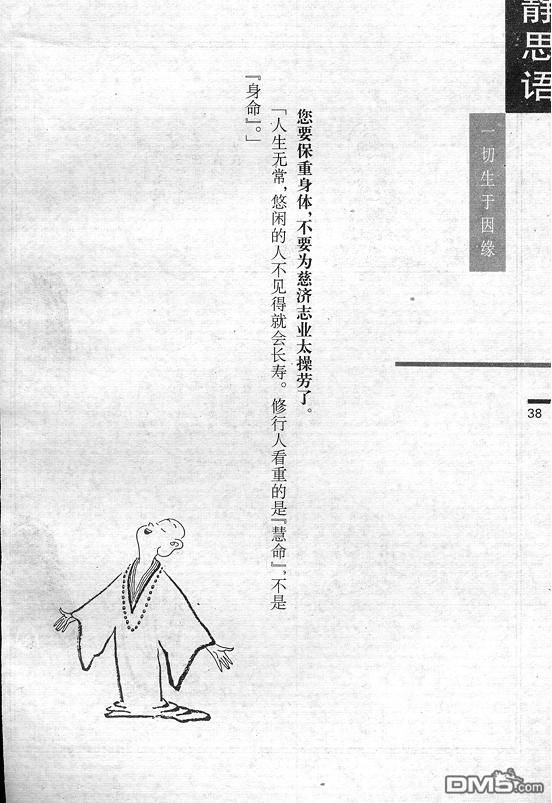 静思语
一切生于因缘
38
您要保重身体，不要为慈济志业太操劳了。
「人生无常，悠闲的人不见得就会长寿。修行人看重的是『慧命』，不是
『身命』。」
DM5.com